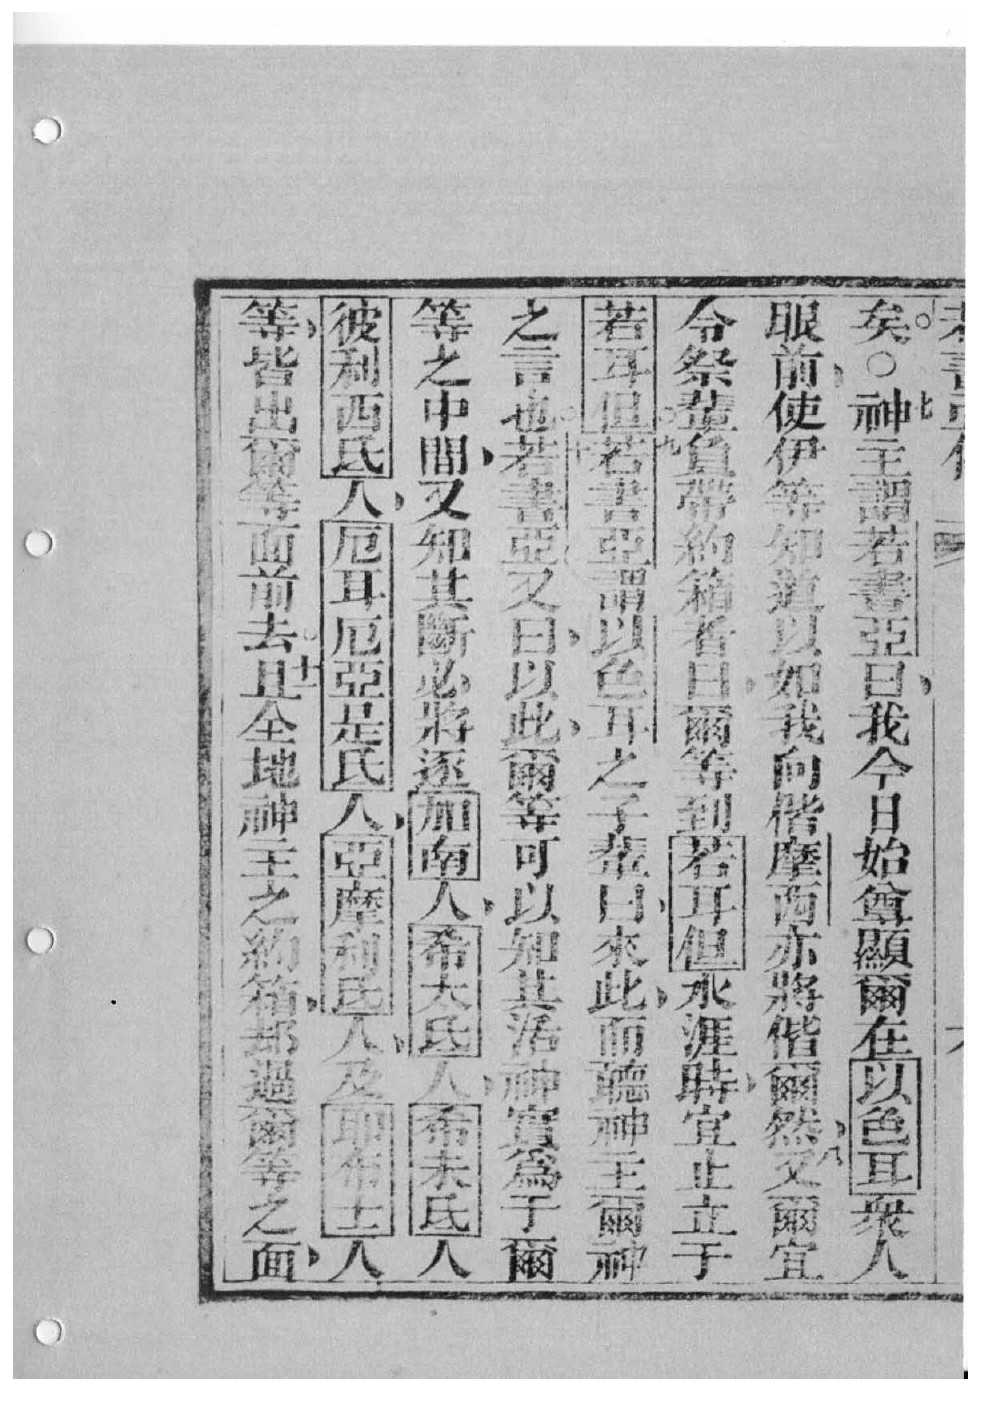 若書亞傳
矣。○神主謂若書亞曰我今日始尊顯爾在以色耳衆人
七
眼前使伊等知道以如我向偕摩西亦將偕爾然又爾宜
八
令祭輩負帶約箱者曰爾等到若耳但水涯時宜止立于
若耳但若書亞謂以色耳之子輩曰來此而聽神主爾神
九
之言也若書亞又曰以此爾等可以知其活神實爲于爾
十
等之中間又知其斷必將逐加南人希太氏人希未氏人
彼利西氏人厄耳厄亞是氏人亞摩利氏人及耶布士人
等皆出爾等面前去且全地神主之約箱却過爾等之面
十一